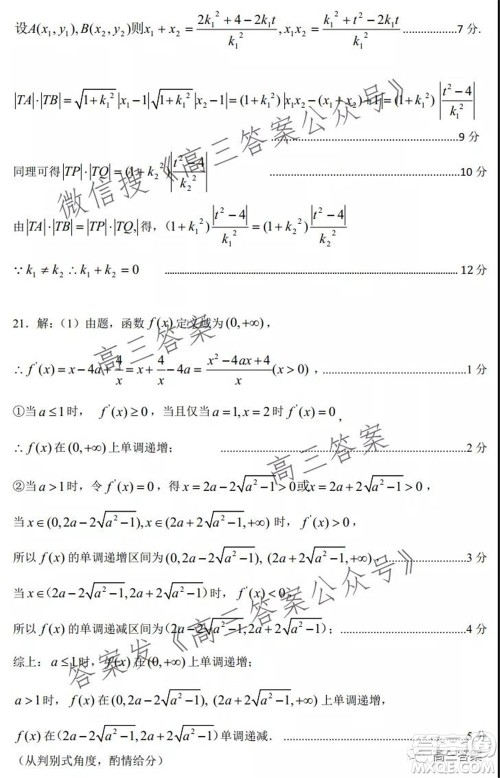 设A(x₁,y₁),B(x₂,y₂)则x₁+x₂=(2k₁²+4-2k₁t)/k₁²,x₁x₂=(k₁²+t²-2k₁t)/k₁² ...............7 分.
|TA|·|TB|=√(1+k₁²)|x₁-1|√(1+k₁²)|x₂-1|=(1+k₁²)|x₁x₂-(x₁+x₂)+1|=(1+k₁²)|(t²-4)/k₁²|
...............9 分
同理可得|TP|·|TQ|=(1+k₂²)|(t²-4)/k₂²| ...............10 分
由|TA|·|TB|=|TP|·|TQ|,得,(1+k₁²)|t²-4|/k₁²=(1+k₂²)|t²-4|/k₂²
∵k₁≠k₂∴k₁+k₂=0 ...............12 分
21. 解:(1)由题,函数f(x)定义域为(0,+∞),
∴f'(x)=x-4a+4/x=x+4/x-4a=(x²-4ax+4)/x(x>0) , ...............1 分
①当a≤1时, f'(x)≥0,当且仅当a=1,x=2时f'(x)=0,
∴f(x)在(0,+∞)上单调递增; ...............2 分
②当a>1时,令f'(x)=0,得x=2a-2√(a²-1)>0或x=2a+2√(a²-1)>0,
当x∈(0,2a-2√(a²-1)),x∈(2a+2√(a²-1),+∞)时,f'(x)>0,
所以f(x)的单调递增区间为(0,2a-2√(a²-1)),(2a+2√(a²-1),+∞); ...............3 分
当x∈(2a-2√(a²-1),2a+2√(a²-1))时,f'(x)<0,
所以f(x)的单调递减区间为(2a-2√(a²-1),2a+2√(a²-1)); ...............4 分
综上:a≤1时,f(x)在(0,+∞)上单调递增;
a>1时,f(x)在(0,2a-2√(a²-1)),(2a+2√(a²-1),+∞)上单调递增,
f(x)在(2a-2√(a²-1),2a+2√(a²-1))单调递减. ...............5 分
(从判别式角度,酌情给分)
微信搜《高三答案公众号》
高三答案
高三答案
答案发《高三答案公众号》
高三答案